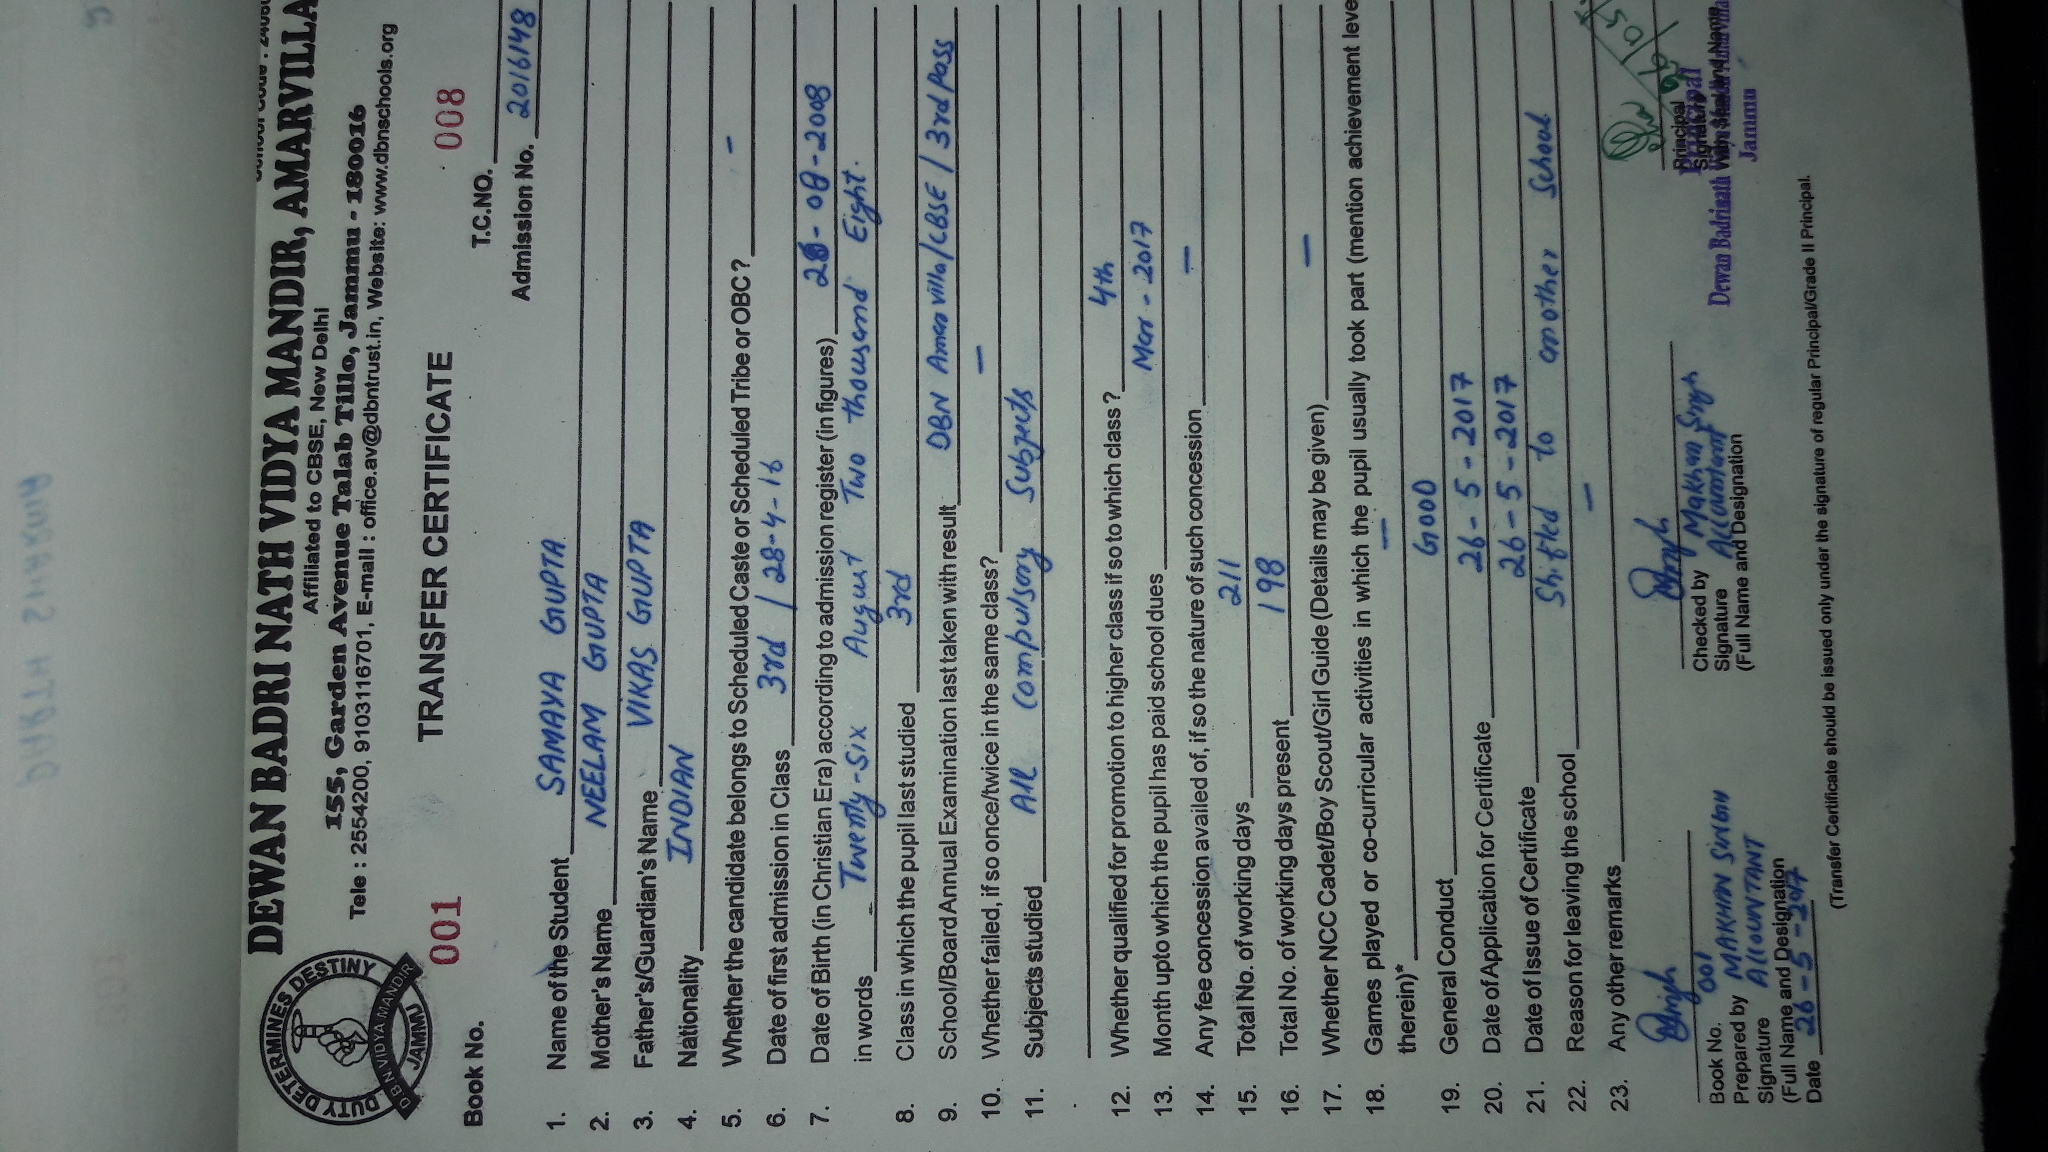 DEWAN BADRI NATH VIDYA MANDIR, AMARVILLA
Affiliated to CBSE, New Delhi
155, Garden Avenue Talab Tillo, Jammu - 180016
Tele : 2554200, 9103116701, E-mail : office.av@dbntrust.in, Website: www.dbnschools.org
DUTY DETERMINES DESTINY
D.B.N VIDYA MANDIR
JAMMU
TRANSFER CERTIFICATE
Book No. 001 T.C.NO. 008
Admission No. 2016148
1. Name of the Student SAMAYA GUPTA
2. Mother's Name NEELAM GUPTA
3. Father's/Guardian's Name VIKAS GUPTA
4. Nationality INDIAN
5. Whether the candidate belongs to Scheduled Caste or Scheduled Tribe or OBC? -
6. Date of first admission in Class 3rd / 28-4-16
7. Date of Birth (in Christian Era) according to admission register (in figures) 26-08-2008
in words Twenty-Six August Two thousand Eight.
8. Class in which the pupil last studied 3rd
9. School/Board Annual Examination last taken with result DBN Amarvilla/CBSE / 3rd Pass
10. Whether failed, if so once/twice in the same class? —
11. Subjects studied All Compulsory Subjects
12. Whether qualified for promotion to higher class if so to which class? 4th
13. Month upto which the pupil has paid school dues Mar-2017
14. Any fee concession availed of, if so the nature of such concession —
15. Total No. of working days 211
16. Total No. of working days present 198
17. Whether NCC Cadet/Boy Scout/Girl Guide (Details may be given) —
18. Games played or co-curicular activities in which the pupil usually took part (mention achievement leve
therein)* —
19. General Conduct GOOD
20. Date of Application for Certificate 26-5-2017
21. Date of Issue of Certificate 26-5-2017
22. Reason for leaving the school Shifted to another School
23. Any other remarks —
Book No. 001
Prepared by MAKHAN SINGH
Signature ACCOUNTANT
(Full Name and Designation
Date 26-5-2017
Checked by Makhan Singh
Signature Accountant
(Full Name and Designation
Principal
Principal
Dewan Badrinath
Jammu
(Transfer Certificate should be issued only under the signature of regular Principal/Grade II Principal.